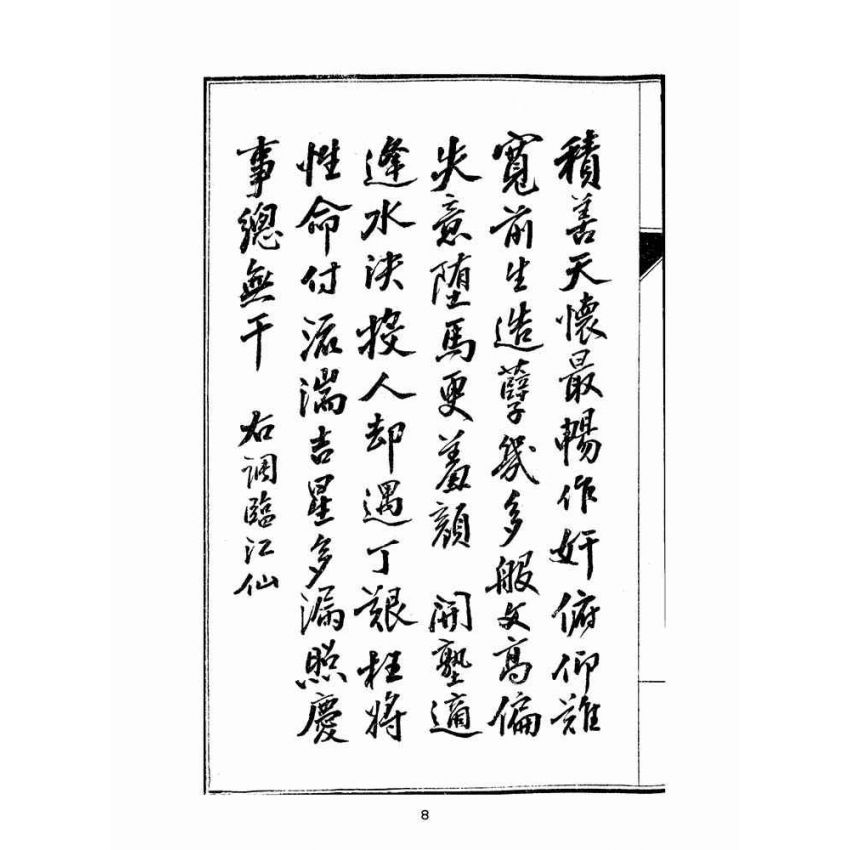 積善天懷最暢作奸俯仰難
寬前生造孽幾多般文高偏
失意墮馬更羞顏　開塾適
逢水決授人却遇丁艱枉將
性命付流湍吉星多漏照慶
事總無干　右調臨江仙
8